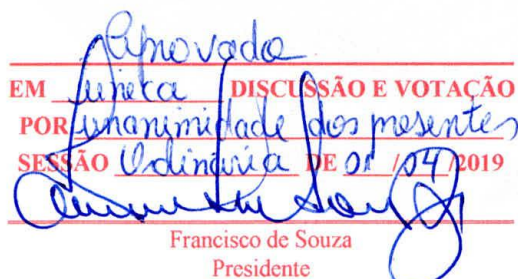 Aprovado
EM Única DISCUSSÃO E VOTAÇÃO
POR unanimidade dos presentes
SESSÃO Ordinária DE 01 /04/2019
Francisco de Souza
Presidente